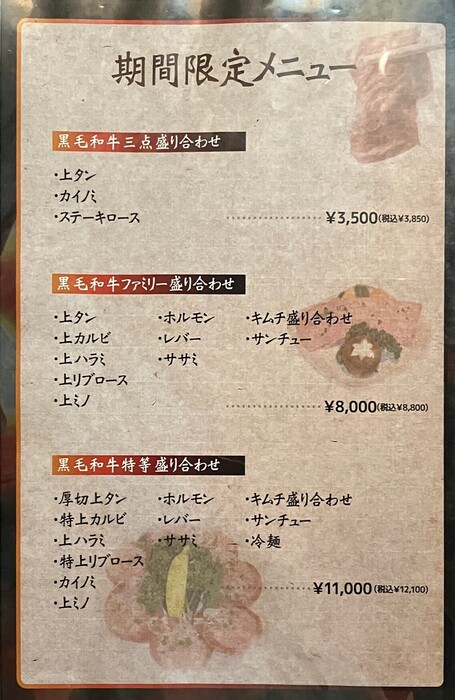 期間限定メニュー
黒毛和牛三点盛り合わせ
・上タン
・カイノミ
・ステーキロース ¥3,500(税込¥3,850)
黒毛和牛ファミリー盛り合わせ
・上タン ・ホルモン ・キムチ盛り合わせ
・上カルビ ・レバー ・サンチュー
・上ハラミ ・ササミ
・上リブロース
・上ミノ
¥8,000(税込¥8,800)
黒毛和牛特等盛り合わせ
・厚切上タン ・ホルモン ・キムチ盛り合わせ
・特上カルビ ・レバー ・サンチュー
・上ハラミ ・ササミ ・冷麺
・特上リブロース
・カイノミ ¥11,000(税込¥12,100)
・上ミノ